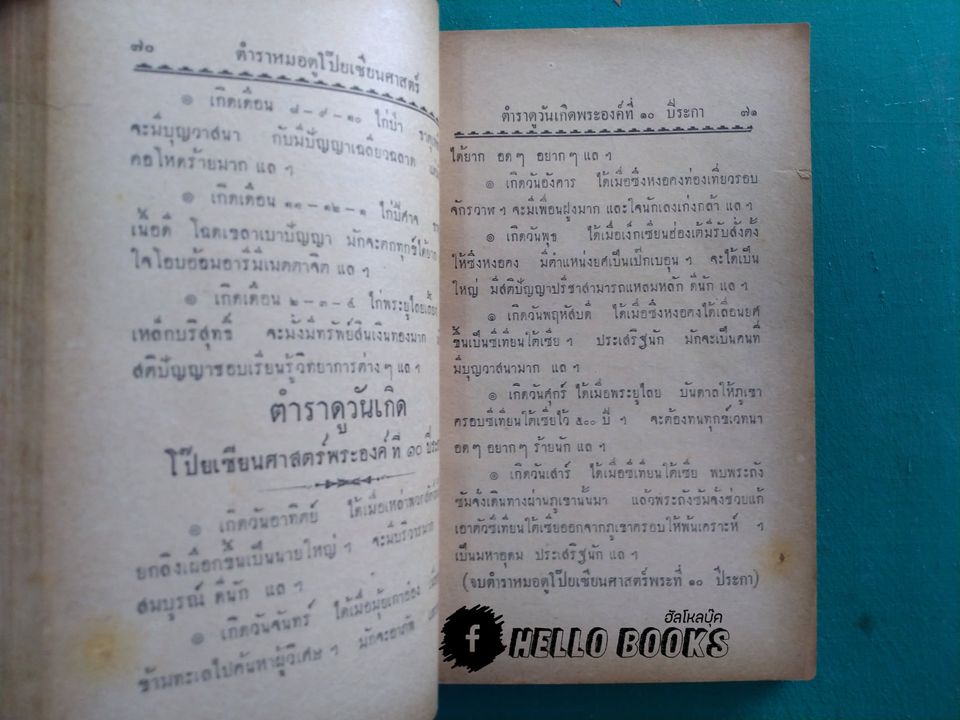 ๗๐ ตำราหมอดูโป๊ยเซียนศาสตร์
๑ เกิดเดือน ๘ – ๙ – ๑๐ ไก่ป่า
จะมีบุญวาสนา กับมีปัญญาเฉลียวฉลาด
คอโหดร้ายมาก แล ฯ
๑ เกิดเดือน ๑๑ – ๑๒ – ๑ ไก่ปีศาจ
เนื้อดี โฉดเขลาเบาปัญญา มักจะตกทุกข์ได้ยาก
ใจโอบอ้อมอารีมีเมตตาจิต แล ฯ
๑ เกิดเดือน ๒ – ๓ – ๔ ไก่พระยูไล
เหล็กบริสุทธิ์ จะมั่งมีทรัพย์สินเงินทองมาก
สติปัญญาชอบเรียนรู้วิทยาการต่างๆ แล ฯ
ตำราดูวันเกิด
โป๊ยเซียนศาสตร์พระองค์ที่ ๑๐ ปีระกา
๑ เกิดวันอาทิตย์ ได้เมื่อเหล่าพวก
ยกลิงเผือกขึ้นเป็นนายใหญ่ ฯ จะมีบริวารมาก
สมบูรณ์ ดีนัก แล ฯ
๑ เกิดวันจันทร์ ได้เมื่อ
ข้ามทะเลไปค้นหาผู้วิเศษ ฯ มักจะอาภัพ
ตำราดูวันเกิดพระองค์ที่ ๑๐ ปีระกา ๗๑
ได้ยาก อดๆ อยากๆ แล ฯ
๑ เกิดวันอังคาร ได้เมื่อซึงหงอคงท่องเที่ยวรอบ
จักรวาฬ ฯ จะมีเพื่อนฝูงมาก และใจนักเลงเก่งกล้า แล ฯ
๑ เกิดวันพุธ ได้เมื่อเง็กเซียนฮ่องเต้มีรับสั่งตั้ง
ให้ซึงหงอคง มีตำแหน่งยศเป็นเป๊กเบอุน ฯ จะได้เป็น
ใหญ่ มีสติปัญญาปรีชาสามารถแหลมหลัก ดีนัก แล ฯ
๑ เกิดวันพฤหัสบดี ได้เมื่อซึงหงอคงได้เลื่อนยศ
ขึ้นเป็นซีเทียนไต้เซีย ฯ ประเสริฐนัก มักจะเป็นคนที่
มีบุญวาสนามาก แล ฯ
๑ เกิดวันศุกร์ ได้เมื่อพระยูไลย บันดาลให้ภูเขา
ครอบซีเทียนไต้เซียไว้ ๕๐๐ ปี ฯ จะต้องทนทุกข์เวทนา
อดๆ อยากๆ ร้ายนัก แล ฯ
๑ เกิดวันเสาร์ ได้เมื่อซีเทียนไต้เซีย พบพระถัง
ซัมจั๋งเดินทางผ่านภูเขานั้นมา แล้วพระถังซัมจั๋งช่วยแก้
เอาตัวซีเทียนไต้เซียออกจากภูเขาครอบให้พ้นเคราะห์ ฯ
เป็นมหาอุดม ประเสริฐนัก แล ฯ
(จบตำราหมอดูโป๊ยเซียนศาสตร์พระที่ ๑๐ ปีระกา)
ฮัลโหลบุ๊ค
f HELLO BOOKS